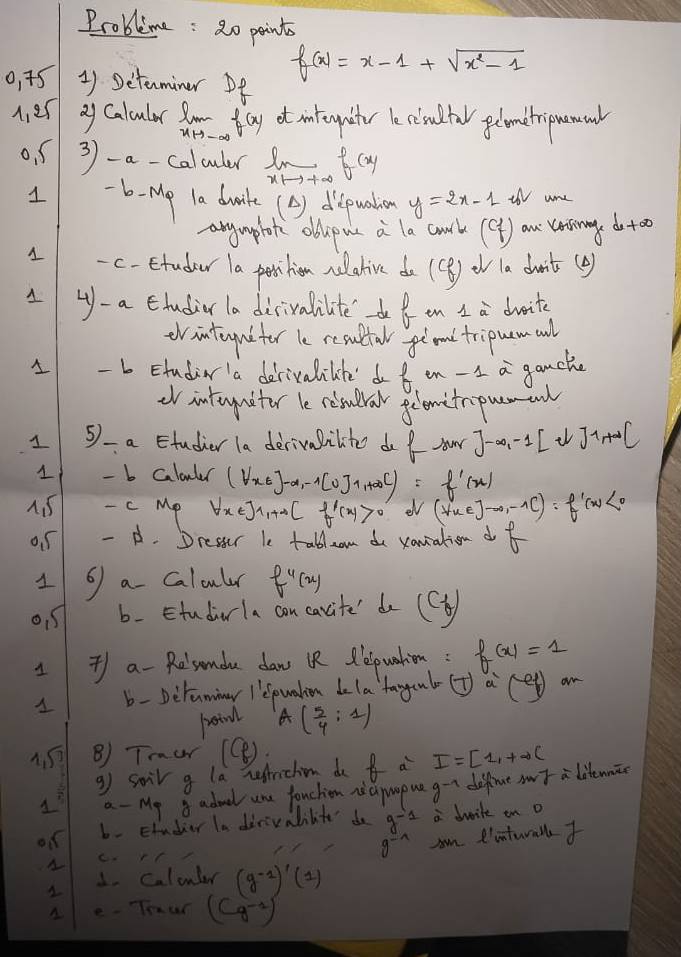 Problème : 20 points
f(x) = x - 1 + √x² - 1
0,75 1) Déterminer Df
1,25 2) Calculer lim x↦-∞ f(x) et interpréter le résultat géométriquement
0,5 3) - a - Calculer lim x↦+∞ f(x)
1 - b - Mq la droite (Δ) d'équation y = 2x - 1 est une
asymptote oblique à la courbe (Cf) au voisinage de +∞
1 - c - Etudier la position relative de (Cf) et la droite (Δ)
1 4) - a Etudier la dérivabilité de f en 1 à droite
et interpréter le resultat géométriquement
1 - b Etudier la dérivabilité de f en -1 à gauche
et interpréter le résultat géométriquement
1 5) - a Etudier la dérivabilité de f sur ]-∞,-1[ et ]1,+∞[
1 - b Calculer (∀x∈]-∞,-1[∪]1,+∞[) : f'(x)
1,5 - c Mq ∀x∈]1,+∞[ f'(x)>0 et (∀x∈]-∞,-1[) : f'(x)<0
0,5 - d. Dresser le tableau de variation de f
1 6) a - Calculer f"(x)
0,5 b - Etudier la concavité de (Cf)
1 7) a - Résoudre dans IR l'équation : f(x) = 1
1 b - Déterminer l'équation de la tangente (T) à (Cf) au
point A (5/4 ; 1)
1,5 8) Tracer (Cf).
9) soit g la restriction de f à I = [1,+∞[
1 a - Mq g admet une fonction réciproque g-1 définie sur J à déterminer
0,5 b - Etudier la dérivabilité de g-1 à droite en 0
1 c. " " " " g-1 sur l'intervalle J
1 d - Calculer (g-1)'(1)
1 e - Tracer (Cg-1)